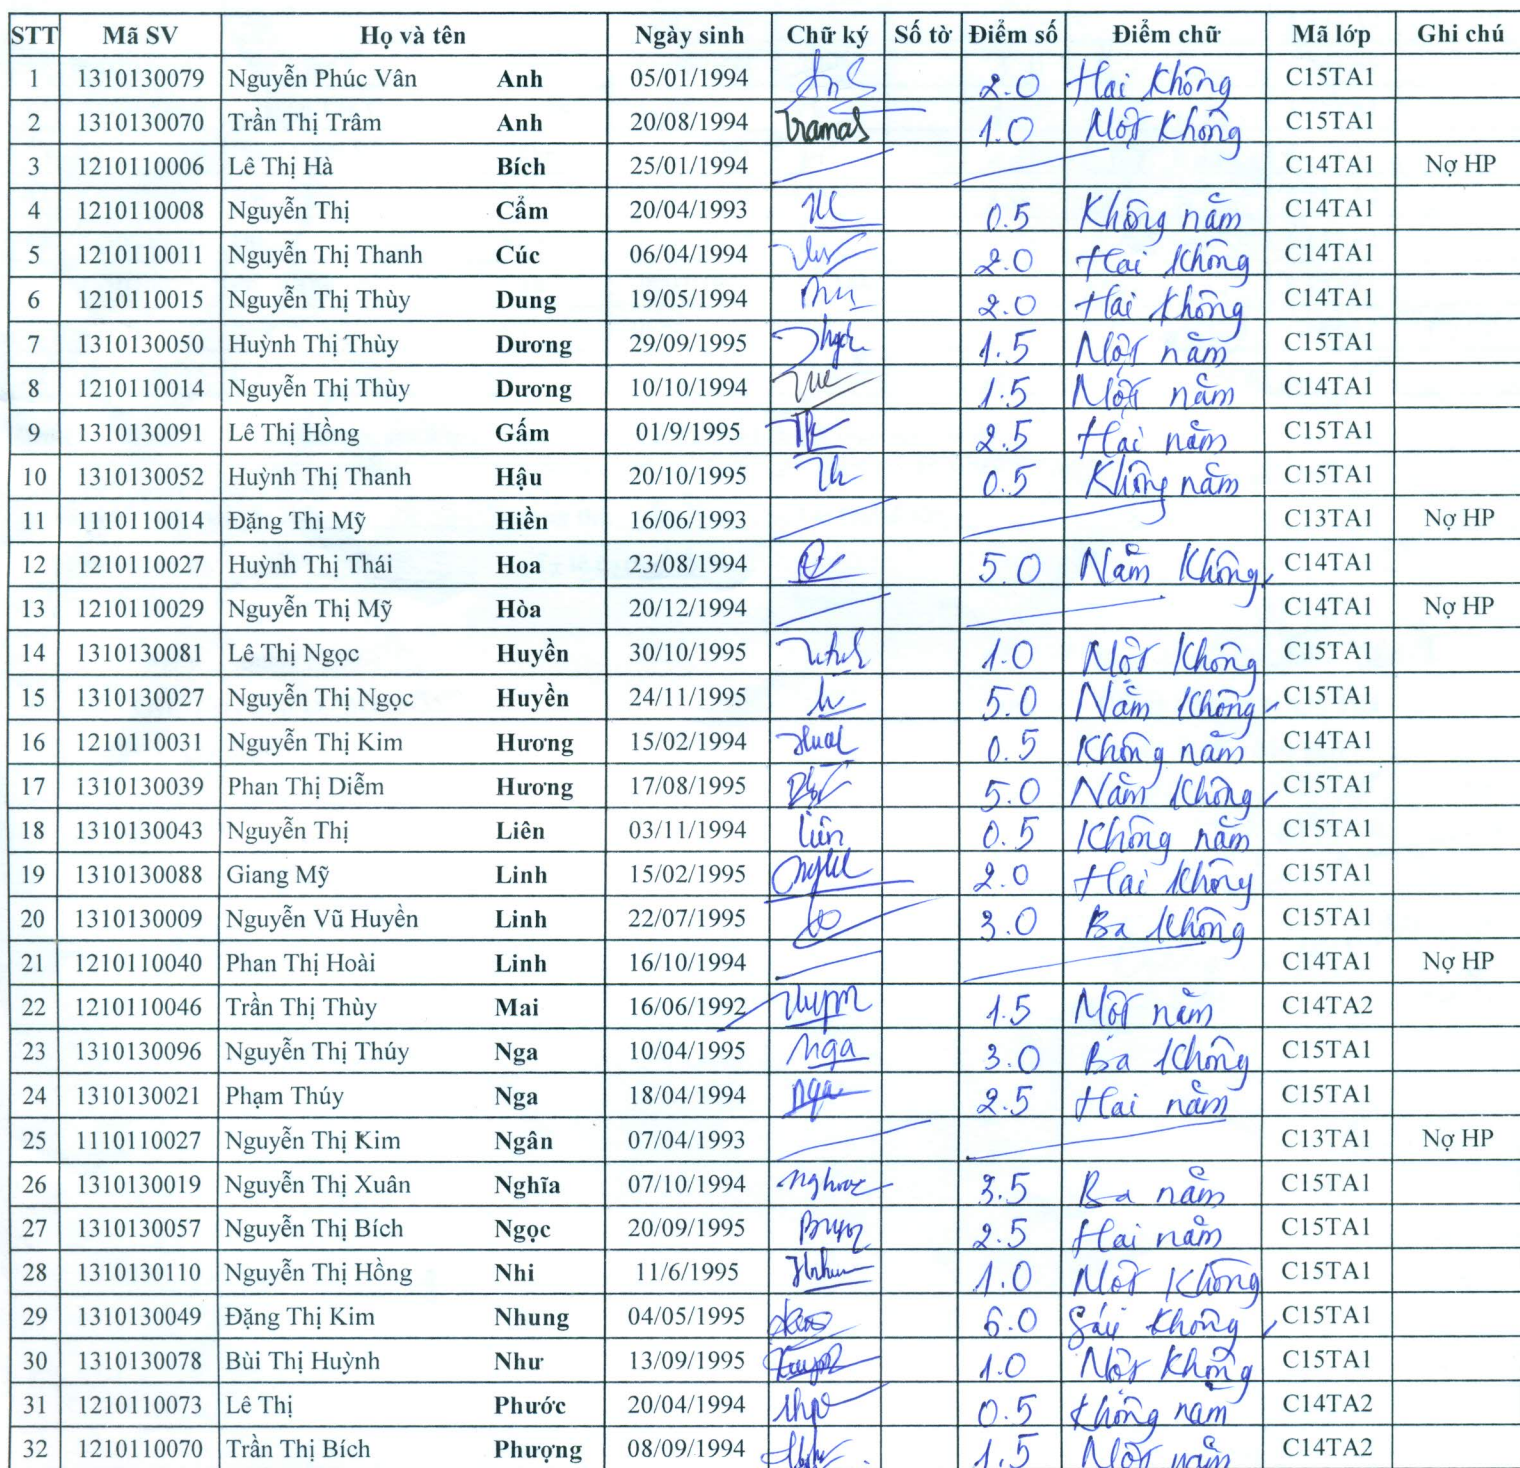 STT Mã SV Họ và tên Ngày sinh Chữ ký Số tờ Điểm số Điểm chữ Mã lớp Ghi chú
1 1310130079 Nguyễn Phúc Vân Anh 05/01/1994 2.0 Hai Không C15TA1
2 1310130070 Trần Thị Trâm Anh 20/08/1994 1.0 Một Không C15TA1
3 1210110006 Lê Thị Hà Bích 25/01/1994 C14TA1 Nợ HP
4 1210110008 Nguyễn Thị Cẩm 20/04/1993 0.5 Không năm C14TA1
5 1210110011 Nguyễn Thị Thanh Cúc 06/04/1994 2.0 Hai Không C14TA1
6 1210110015 Nguyễn Thị Thùy Dung 19/05/1994 2.0 Hai Không C14TA1
7 1310130050 Huỳnh Thị Thùy Dương 29/09/1995 1.5 Một năm C15TA1
8 1210110014 Nguyễn Thị Thùy Dương 10/10/1994 1.5 Một năm C14TA1
9 1310130091 Lê Thị Hồng Gấm 01/9/1995 2.5 Hai năm C15TA1
10 1310130052 Huỳnh Thị Thanh Hậu 20/10/1995 0.5 Không năm C15TA1
11 1110110014 Đặng Thị Mỹ Hiền 16/06/1993 C13TA1 Nợ HP
12 1210110027 Huỳnh Thị Thái Hoa 23/08/1994 5.0 Năm Không C14TA1
13 1210110029 Nguyễn Thị Mỹ Hòa 20/12/1994 C14TA1 Nợ HP
14 1310130081 Lê Thị Ngọc Huyền 30/10/1995 1.0 Một Không C15TA1
15 1310130027 Nguyễn Thị Ngọc Huyền 24/11/1995 5.0 Năm Không C15TA1
16 1210110031 Nguyễn Thị Kim Hương 15/02/1994 0.5 Không năm C14TA1
17 1310130039 Phan Thị Diễm Hương 17/08/1995 5.0 Năm Không C15TA1
18 1310130043 Nguyễn Thị Liên 03/11/1994 liên 0.5 Không năm C15TA1
19 1310130088 Giang Mỹ Linh 15/02/1995 2.0 Hai Không C15TA1
20 1310130009 Nguyễn Vũ Huyền Linh 22/07/1995 3.0 Ba Không C15TA1
21 1210110040 Phan Thị Hoài Linh 16/10/1994 C14TA1 Nợ HP
22 1210110046 Trần Thị Thùy Mai 16/06/1992 1.5 Một năm C14TA2
23 1310130096 Nguyễn Thị Thúy Nga 10/04/1995 Nga 3.0 Ba Không C15TA1
24 1310130021 Phạm Thúy Nga 18/04/1994 Nga 2.5 Hai năm C15TA1
25 1110110027 Nguyễn Thị Kim Ngân 07/04/1993 C13TA1 Nợ HP
26 1310130019 Nguyễn Thị Xuân Nghĩa 07/10/1994 3.5 Ba năm C15TA1
27 1310130057 Nguyễn Thị Bích Ngọc 20/09/1995 2.5 Hai năm C15TA1
28 1310130110 Nguyễn Thị Hồng Nhi 11/6/1995 1.0 Một Không C15TA1
29 1310130049 Đặng Thị Kim Nhung 04/05/1995 6.0 Sáu Không C15TA1
30 1310130078 Bùi Thị Huỳnh Như 13/09/1995 1.0 Một Không C15TA1
31 1210110073 Lê Thị Phước 20/04/1994 0.5 Không năm C14TA2
32 1210110070 Trần Thị Bích Phượng 08/09/1994 1.5 Một năm C14TA2